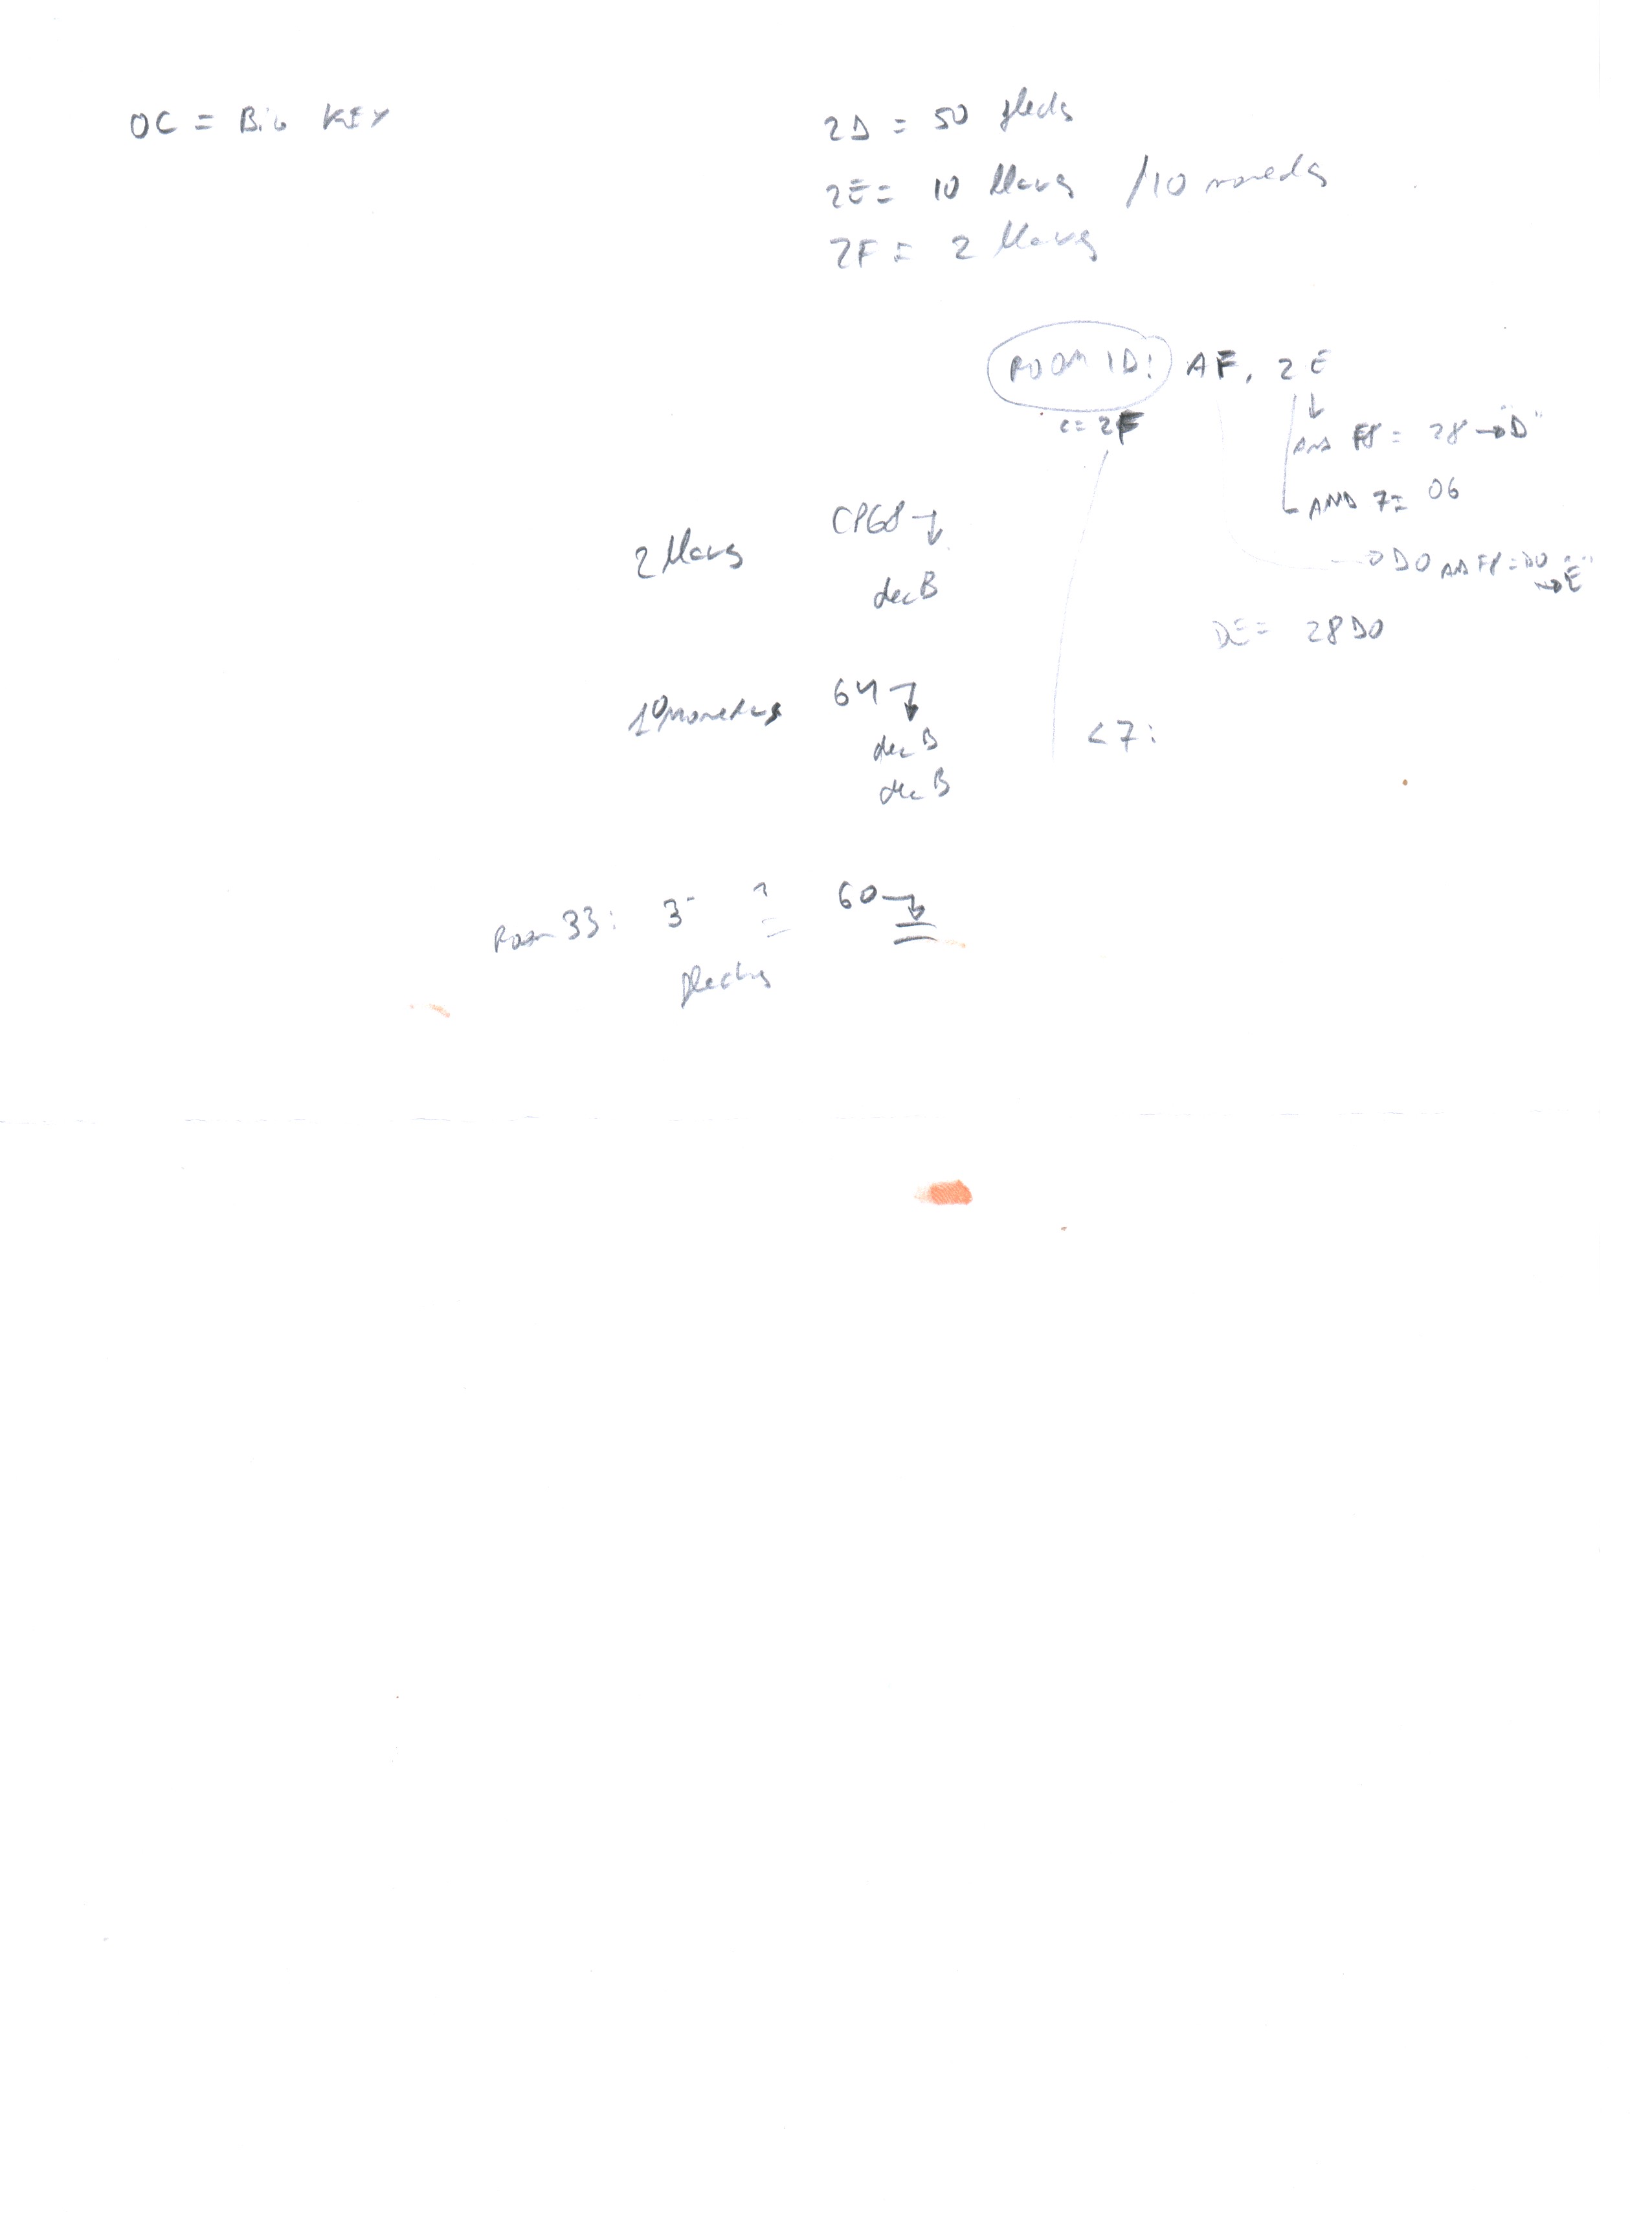 0C = BiG KEY
2D = 50 flechs
2E = 10 llaves /10 monedas
2F = 2 llaves
ROOM ID: AF, 2E
C = 2F
AND F8 = 28 → "D"
AND 7 = 06
→ DD0 AND F8 = D0 → "E"
DE = 28D0
2 llaves CP68 ↴
dec B
10 monedas 64 ↴
dec B
dec B
< 7:
Room 33: 3- ? = 60 ↴
flechas